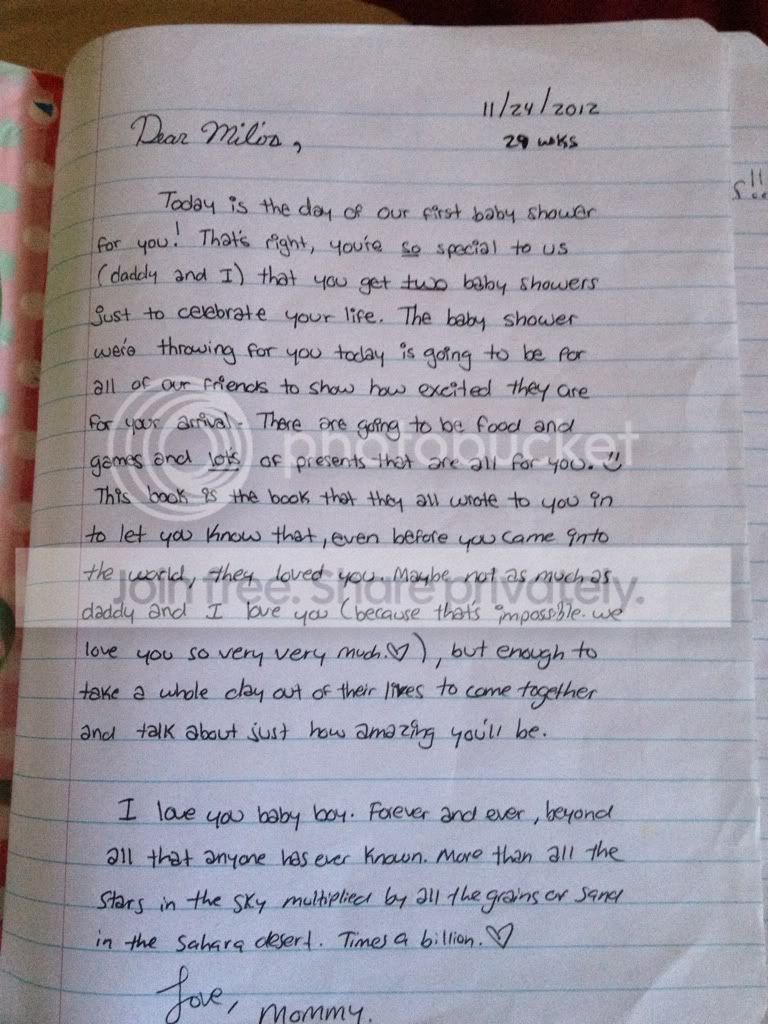 11/24/2012
Dear Milos,
29 wks
Today is the day of our first baby shower
for you! That's right, you're so special to us
(daddy and I) that you get two baby showers
just to celebrate your life. The baby shower
we're throwing for you today is going to be for
all of our friends to show how excited they are
for your arrival. There are going to be food and
games and lots of presents that are all for you.
This book is the book that they all wrote to you in
to let you know that, even before you came into
the world, they loved you. Maybe not as much as
daddy and I love you (because that's impossible. We
love you so very very much.♡), but enough to
take a whole day out of their lives to come together
and talk about just how amazing you'll be.
I love you baby boy. Forever and ever, beyond
all that anyone has ever known. More than all the
stars in the sky multiplied by all the grains of sand
in the Sahara desert. Times a billion.♡
Love, Mommy.
photobucket
Join free. Share privately.